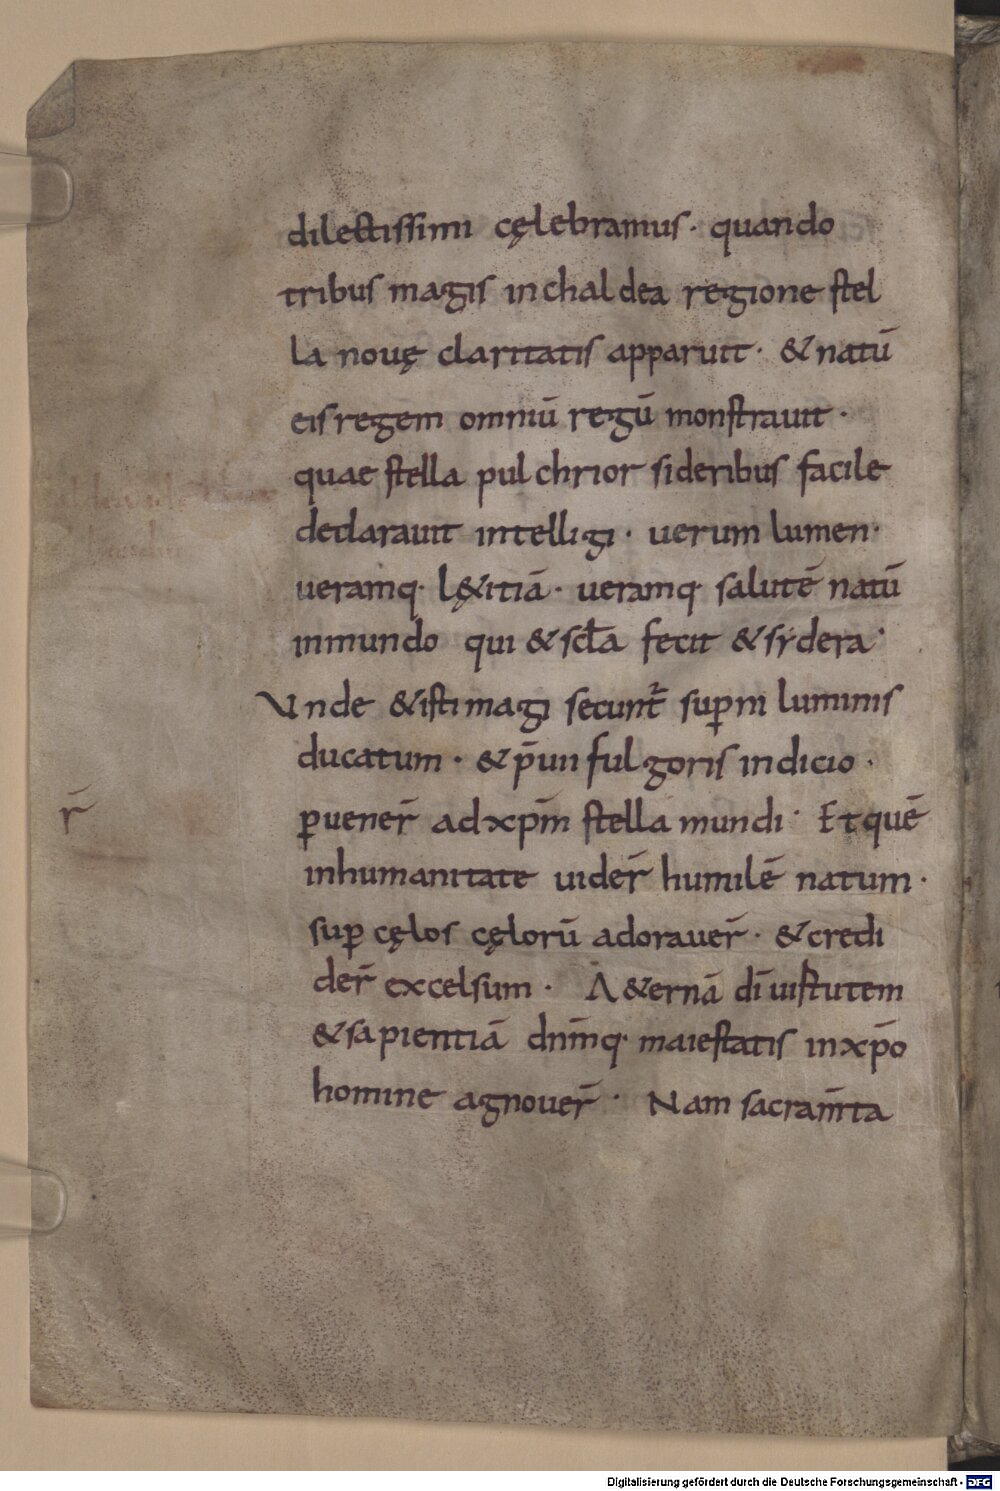 dilectissimi cęlebramus· quando
tribus magis inchaldea regione stel
la nouę claritatis apparuit· &natū
eis regem omniū regū monstrauit·
quae stella pulchrior sideribus facile
declarauit intelligi· uerum lumen·
ueramq· lę&itiā· ueramq· salutē natū
inmundo qui &scła fecit &sydera·
Vnde &isti magi secunt̄ sup̄ni luminis
ducatum· &p̄uii fulgoris indicio·
r̄
ꝑuener̄ adxp̄m stella mundi· Et quē
inhumanitate uider̄ humilē natum·
suꝑ cęlos cęlorū adorauer̄· &credi
der̄ excelsum· A&ernā dī uirtutem
&sapientiā dn̄mq· maiestatis inxp̄o
homine agnouer̄· Nam sacram̄ta
Digitalisierung gefördert durch die Deutsche Forschungsgemeinschaft - DFG